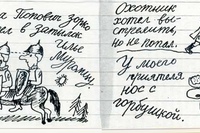 а Попович зорко
ел в затылок
Илье
Муромцу.
Охотник
хотел вы-
стрелить,
но не попал.
У моего
приятеля
нос с
горбушкой.